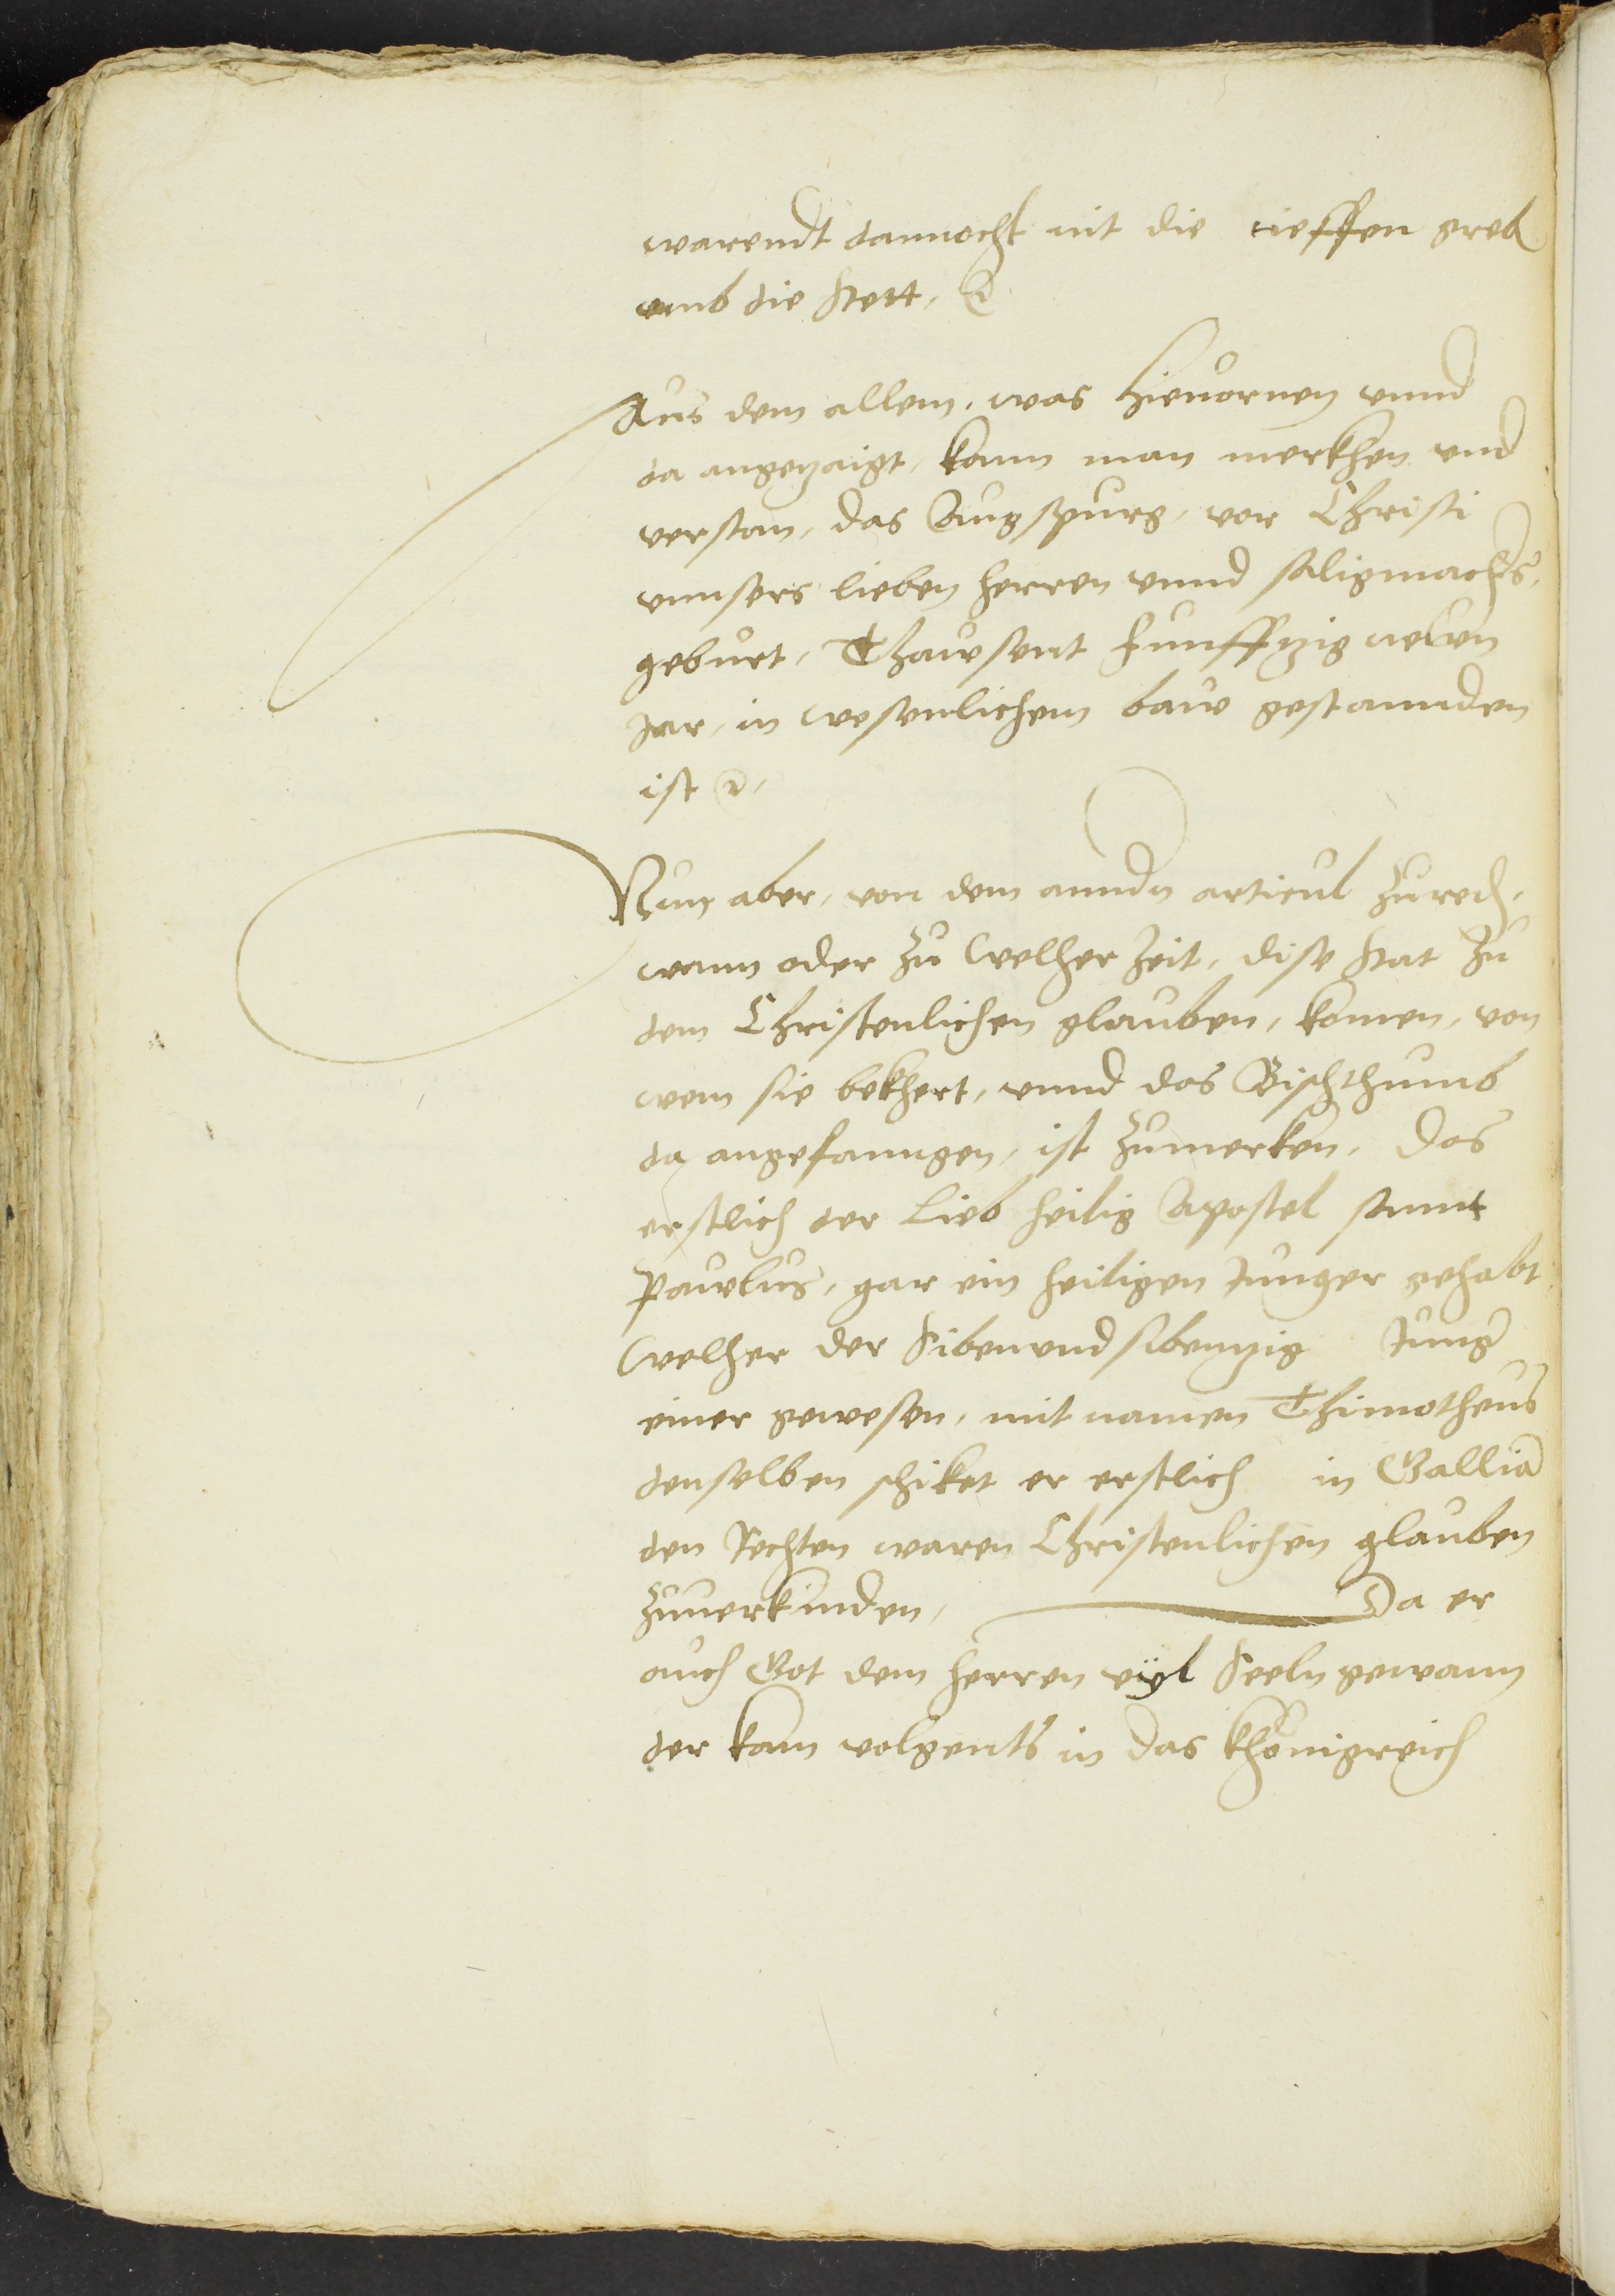 warendt dannocht nit die tieffen greb
vmb die stett, ꝛc
Aus dem allem, was hieuornen vnnd
da angezaigt, kann man merkhen vnd
verstan, das Augspurg, vor Christi
vnnsers lieben herren vnnd saligmachers,
geburt, Thawsent funffzig
Jar, in wesenlichem baw gestannden
ist ꝛc,
Nun aber, von dem anndn articul zu red,
wann oder zu welher zeit, dise stat zu
dem Christenlichen glauben, komen, von
wem sie bekhert, vnnd das Bischthumb
da angefanngen, ist zumerken, das
erstlich der lieb heilig Apostel sannt
Pawlus, gar ein heiligen Junger gehabt
welher der sibenvndsibenzig Jung
einer gewesen, mit namen Thimotheus
denselben schiket er erstlich in Gallia
den Rechten waren Christenlichen glauben
zuuerkinden, Da er
auch Got dem herren vÿl seeln gewann
der kam volgents in das khönigreich